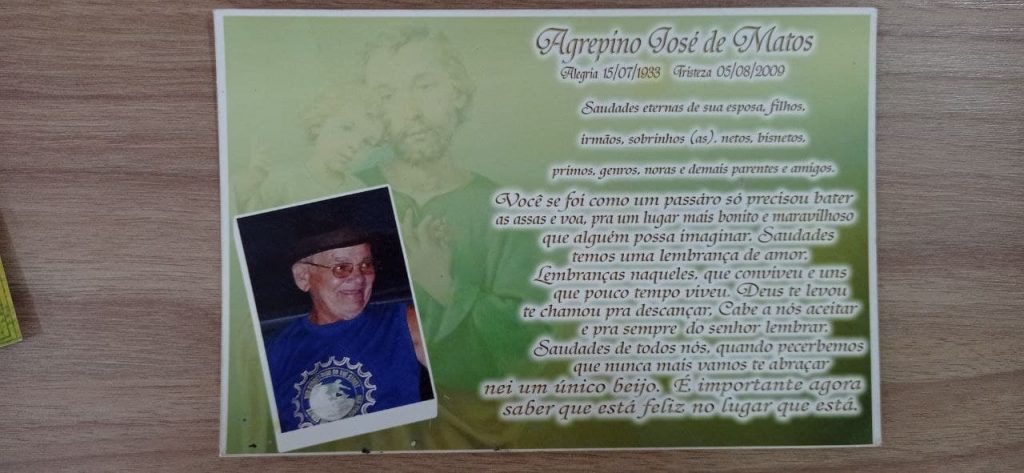 Agrepino José de Matos
Alegria 15/07/1933 Tristeza 05/08/2009
Saudades eternas de sua esposa, filhos,
irmãos, sobrinhos (as), netos, bisnetos,
primos, genros, noras e demais parentes e amigos.
Você se foi como um passáro só precisou bater
as assas e voa, pra um lugar mais bonito e maravilhoso
que alguém possa imaginar. Saudades
temos uma lembrança de amor.
Lembranças naqueles, que conviveu e uns
que pouco tempo viveu. Deus te levou
te chamou pra descançar, Cabe a nós aceitar
e pra sempre do senhor lembrar.
Saudades de todos nós, quando pecerbemos
que nunca mais vamos te abraçar
nei um único beijo. É importante agora
saber que está feliz no lugar que está.